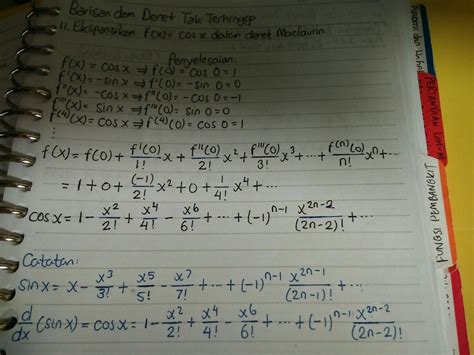 Barisan dan Deret Tak Terhingga
11. Ekspansikan f(x) = cos x dalam deret Maclaurin.
Penyelesaian:
f(x) = cos x ⇒ f(0) = cos 0 = 1
f'(x) = -sin x ⇒ f'(0) = -sin 0 = 0
f''(x) = -cos x ⇒ f''(0) = -cos 0 = -1
f'''(x) = sin x ⇒ f'''(0) = sin 0 = 0
f⁽⁴⁾(x) = cos x ⇒ f⁽⁴⁾(0) = cos 0 = 1
f(x) = f(0) + f'(0)/1! x + f''(0)/2! x² + f'''(0)/3! x³ + ... + f⁽ⁿ⁾(0)/n! xⁿ + ...
= 1 + 0 + (-1)/2! x² + 0 + 1/4! x⁴ + ...
cos x = 1 - x²/2! + x⁴/4! - x⁶/6! + ... + (-1)ⁿ⁻¹ x²ⁿ⁻²/(2n-2)! + ...
Catatan:
sin x = x - x³/3! + x⁵/5! - x⁷/7! + ... + (-1)ⁿ⁻¹ x²ⁿ⁻¹/(2n-1)! + ...
d/dx (sin x) = cos x = 1 - x²/2! + x⁴/4! - x⁶/6! + ... + (-1)ⁿ⁻¹ x²ⁿ⁻²/(2n-2)!
FUNGSI PEMBANGKIT